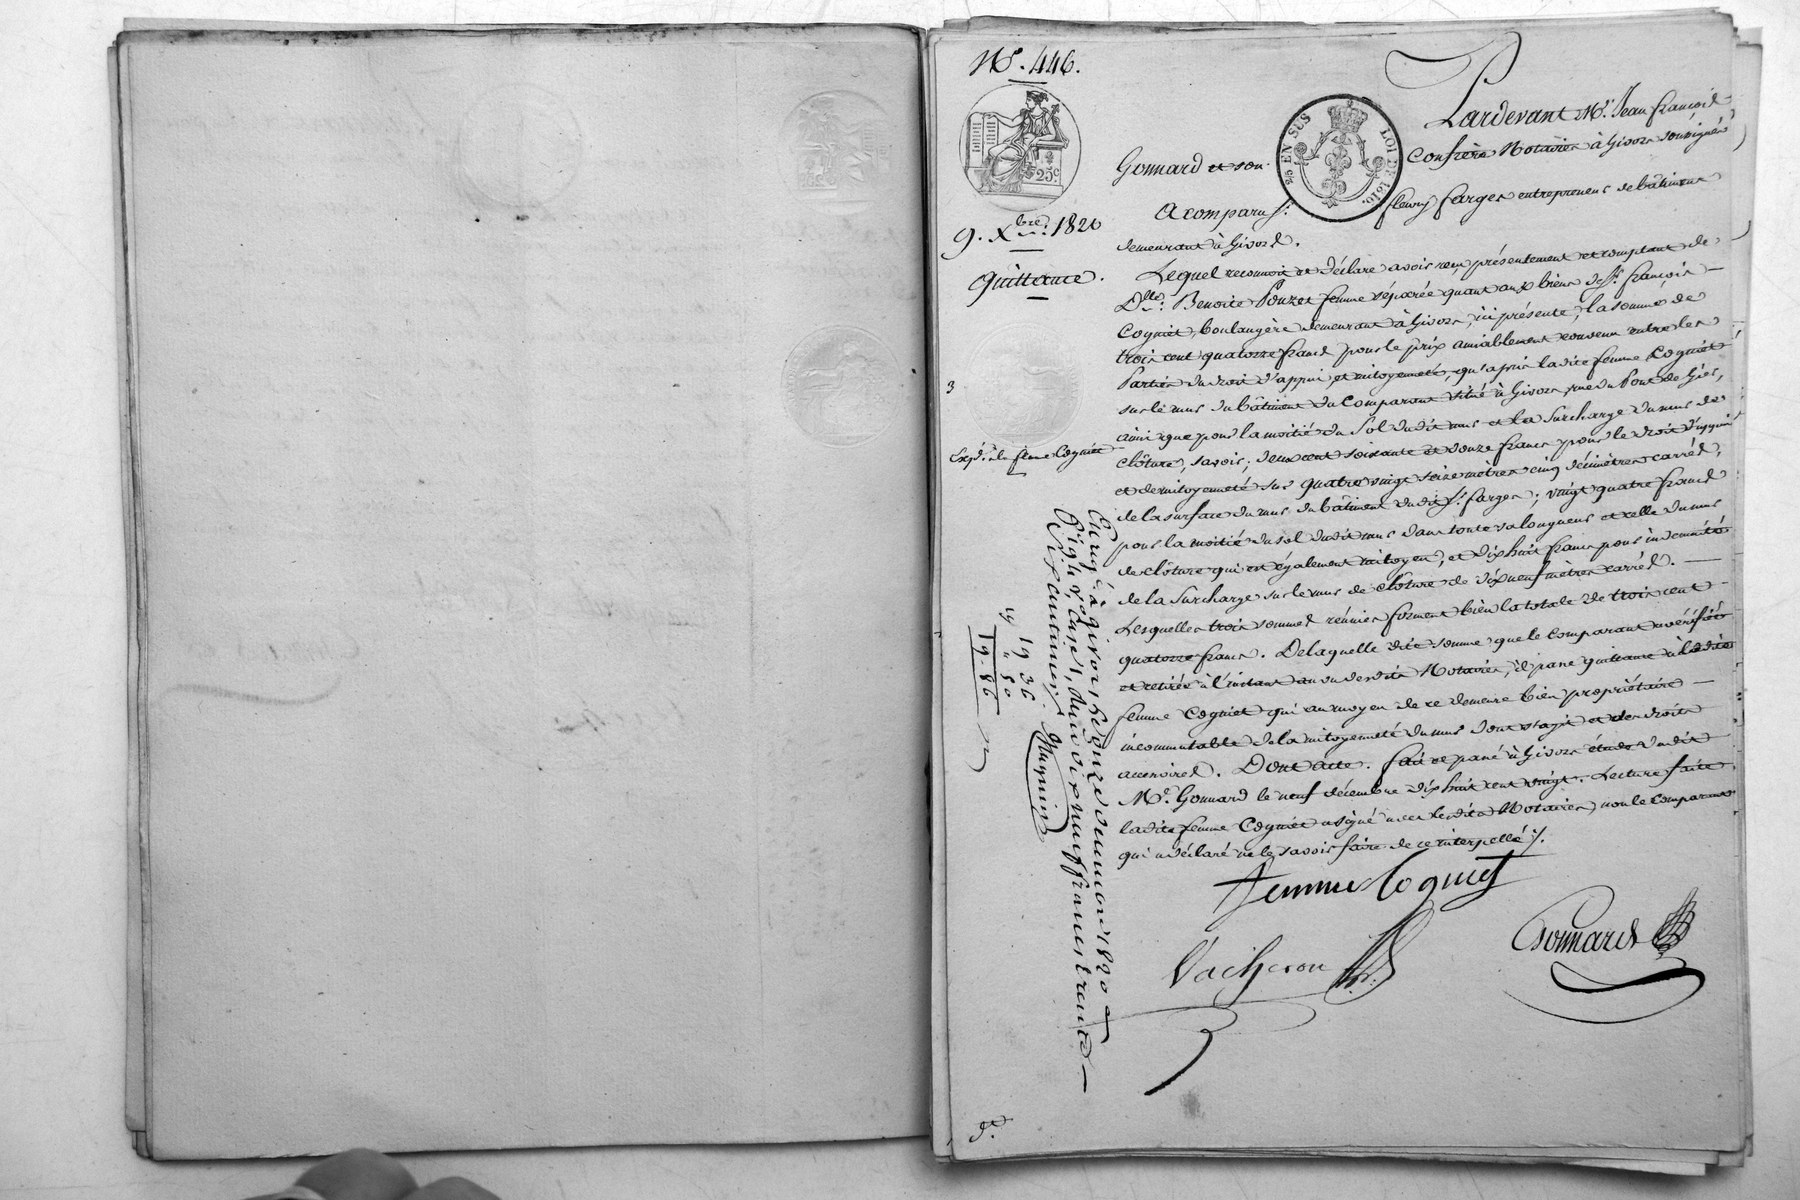 N.° 446.
25.c
EN SUS
LOI DE 1816.
9. Xbre. 1820
quittance.
3
Expd. à la fme Cogniet
Pardevant Me. Jean françois
Gonnard et son confrère Notaires à Givors soussignés
A comparu Sr. fleury farges entrepreneur de bâtimens
demeurant à Givors.
Lequel reconnoit et déclare avoir reçu présentement et comptant de
Dlle. Benoite Pouzet femme séparée quant aux biens de Sr. françois
Cogniet, boulangère demeurant à Givors, ici présente, la somme de
trois cent quatorze francs pour le prix amiablement convenu entre les
Parties du droit d'appui et mitoyenneté, qu'a pris la dite femme Cogniet
sur le mur du bâtiment du Comparant situé à Givors, rue du Pont de Gier,
ainsi que pour la moitié du Sol dudit mur et la Surcharge du mur de
clôture, savoir; deux cent soixante et douze francs pour le droit d'appui
et de mitoyenneté sur quatre vingt seize mètres cinq décimètres carrés,
de la surface du mur du bâtiment dudit Sr. farges; vingt quatre francs
pour la moitié du sol dudit mur dans toute sa longueur et celle du mur
de clôture qui est également mitoyen, et dix huit francs pour indemnité
de la Surcharge sur le mur de clôture de dix neuf mètres carrés.
Lesquelles trois sommes réunies forment bien la totale de trois cent
quatorze francs. De laquelle dite somme que le comparant a vérifiée
et retirée à l'instant au vu desdits Notaires, il passe quittance à ladite
femme Cogniet qui au moyen de ce demeure bien propriétaire
incommutable de la mitoyenneté du mur dont s'agit et des droits
accessoires. Dont acte. fait et passé à Givors étude dudit
Me. Gonnard le neuf décembre dix huit cent vingt. Lecture faite
ladite femme Cogniet a signé avec lesdits Notaires, non le Comparant
qui a déclaré ne le savoir faire de ce interpellé ./.
femme Cogniet
Vacheron
Gonnard
Enreg.é à givors le onze décembre 1820 f.°
Case 1, reçu dix neuf francs trente
six centimes.
19 36
" 50
19 - 86